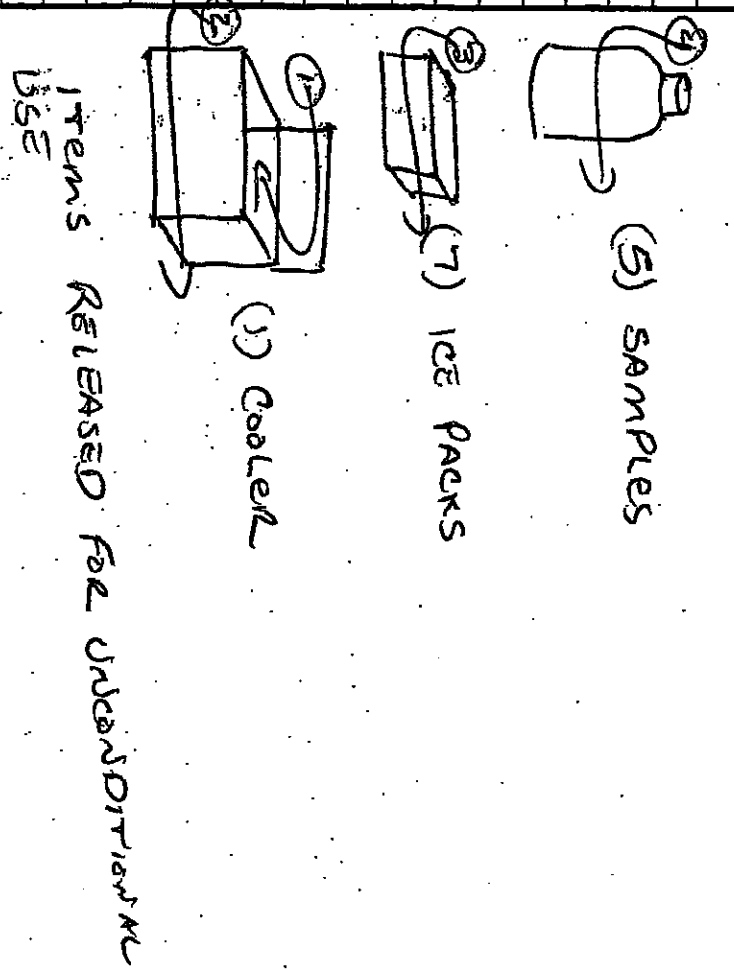 4
(5) SAMPLES
3
(7) ICE PACKS
1
2
(1) COOLER
ITEMS RELEASED FOR UNCONDITIONAL
USE